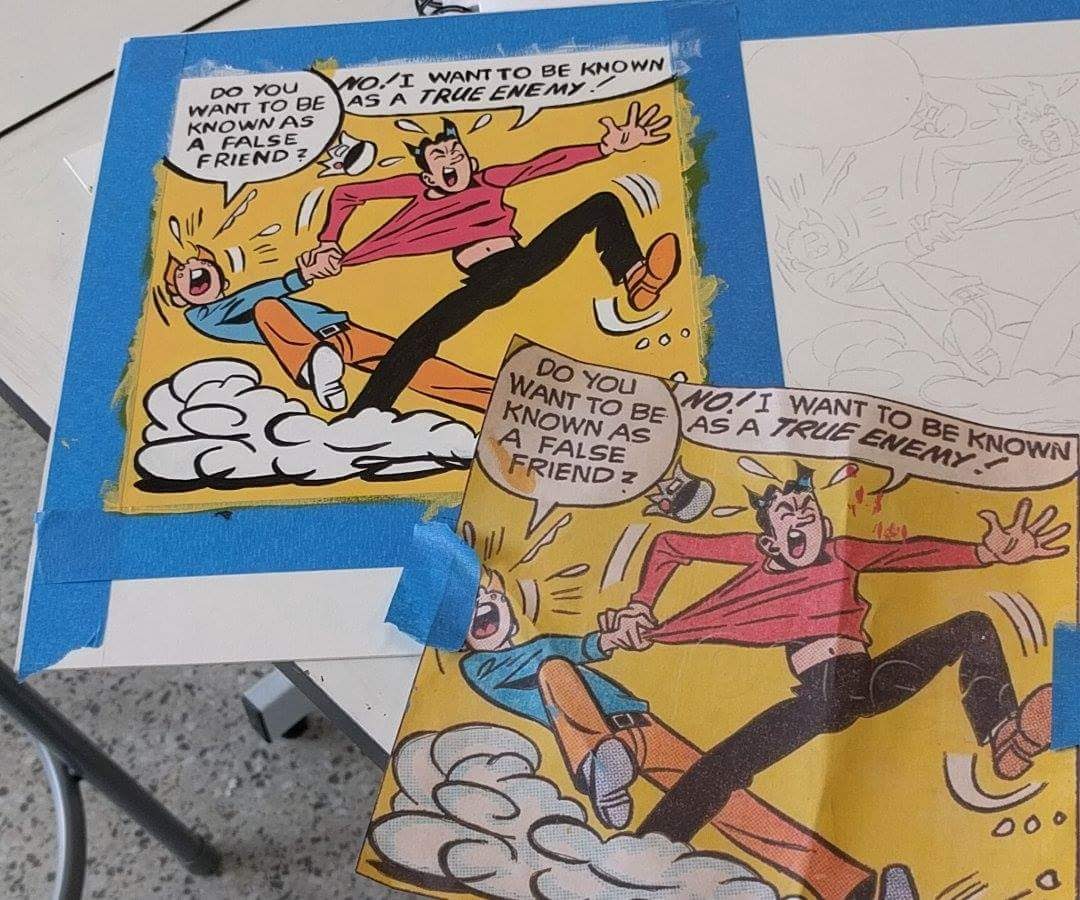 DO YOU
WANT TO BE
KNOWN AS
A FALSE
FRIEND?
NO! I WANT TO BE KNOWN
AS A TRUE ENEMY!
DO YOU
WANT TO BE
KNOWN AS
A FALSE
FRIEND?
NO! I WANT TO BE KNOWN
AS A TRUE ENEMY!